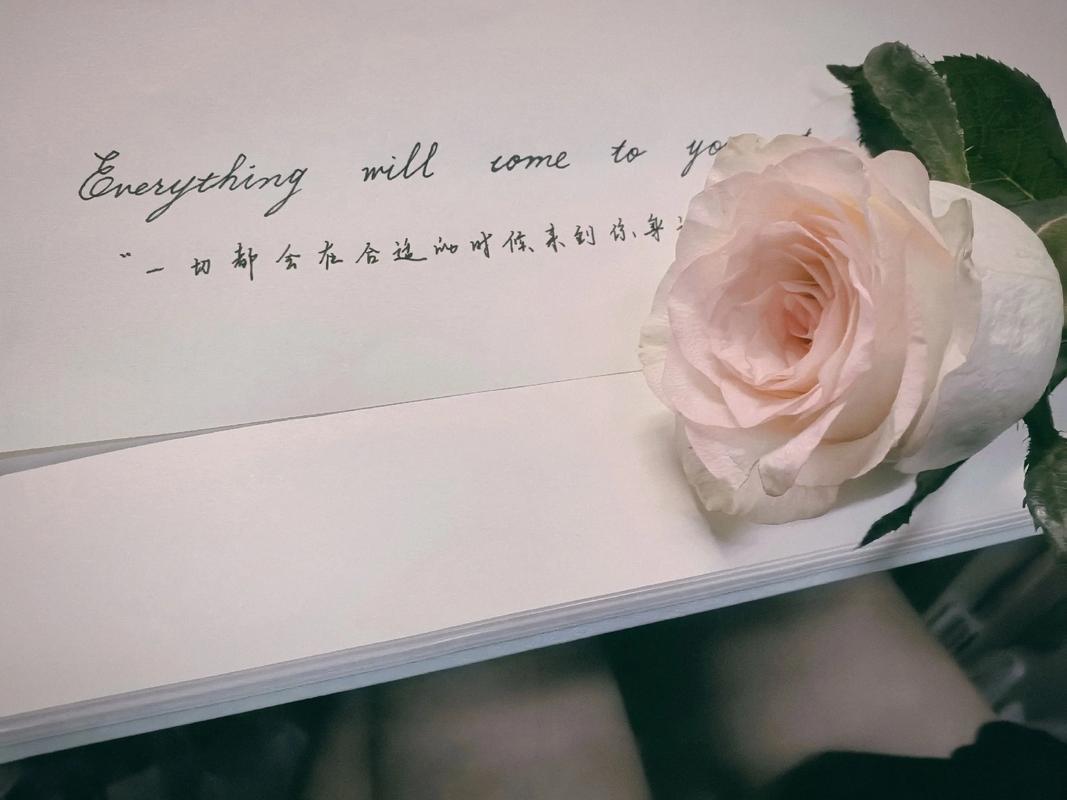 Everything will come to yo
“一切都会在合适的时候来到你身